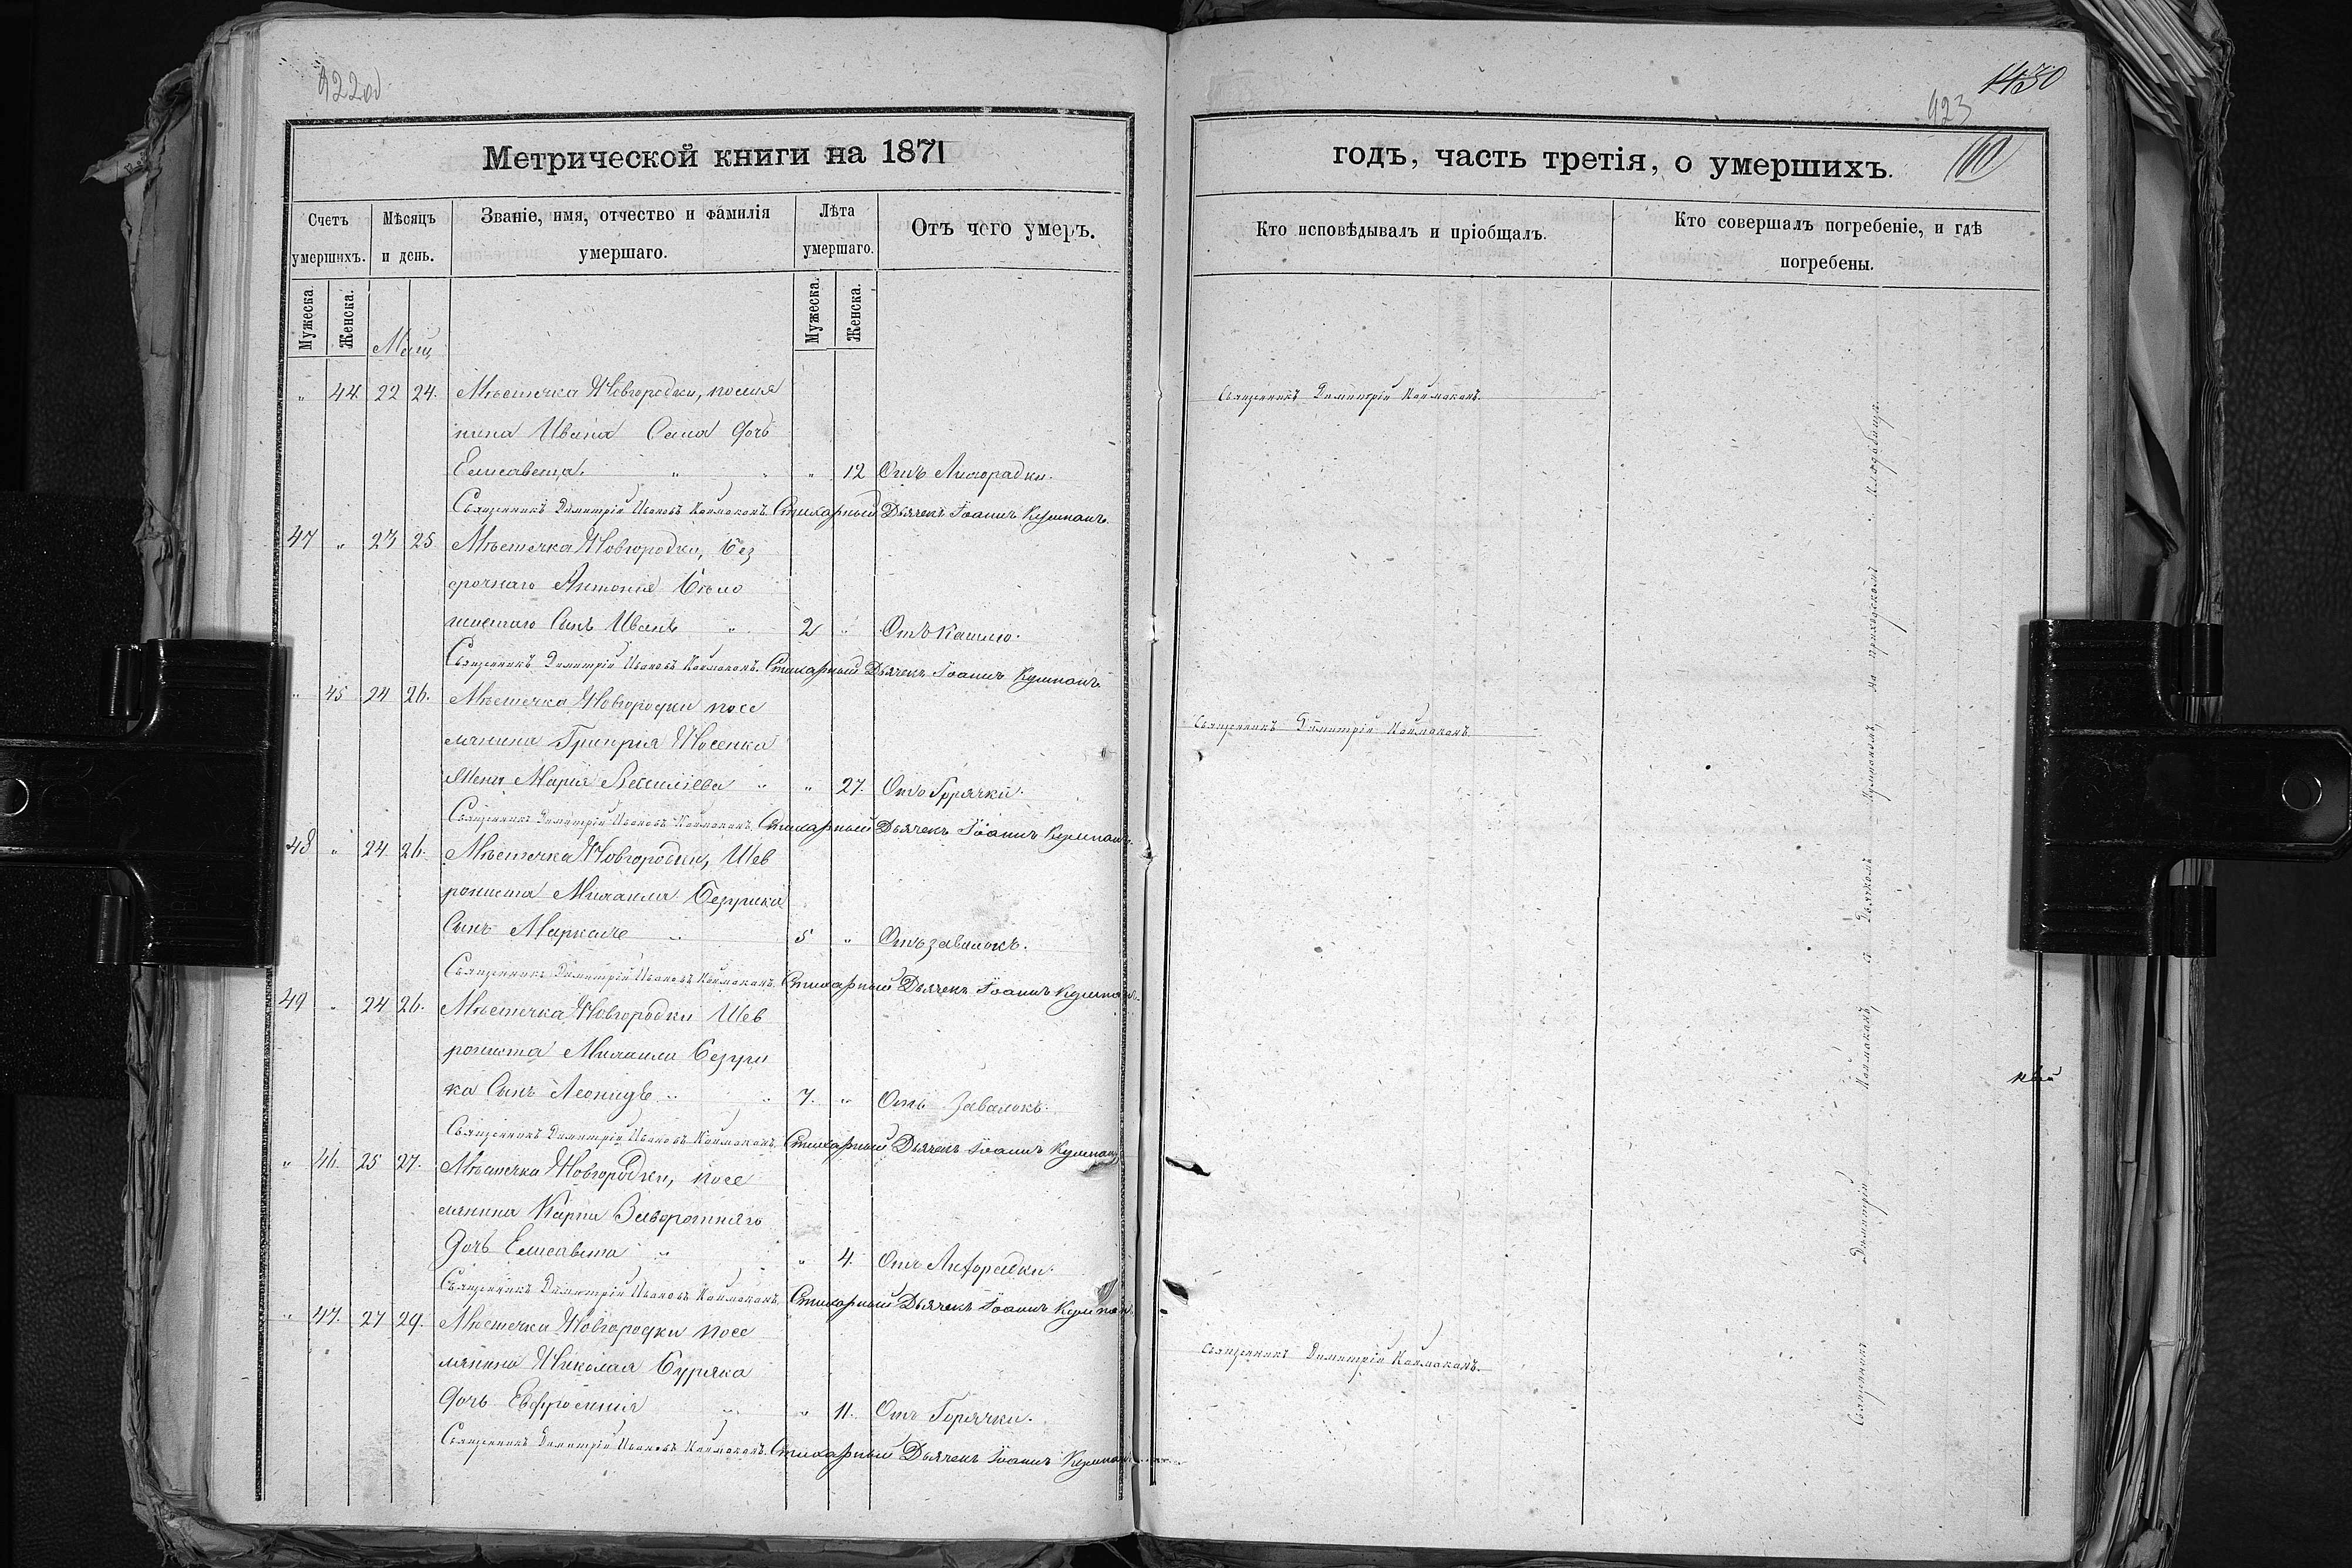 922об
1430
923
Метрической книги на 1871
годъ, часть третія, о умершихъ.
Счетъ умершихъ.
Мѣсяцъ и день.
Званіе, имя, отчество и фамилія умершаго.
Лѣта умершаго.
Отъ чего умеръ.
Кто исповѣдывалъ и пріобщалъ.
Кто совершалъ погребеніе, и гдѣ погребены.
Мужеска.
Женска.
Мужеска.
Женска.
Маій
" 44. 22 24. Мѣстечка Новгородки, поселя
нина Ивана дочь
Елисавета. " " 12 Отъ Лихорадки.
Священникъ Димитрій Каймаканъ.
Священникъ Димитрій Ивановъ Каймаканъ. Стихарный Дьячекъ Іоаннъ Кушпанъ.
47 " 23 25 Мѣстечка Новгородки, без
срочнаго Антонія Бѣло
шистаго Сынъ Иванъ " 2 " Отъ Кашлю.
Священникъ Димитрій Ивановъ Каймаканъ. Стихарный Дьячекъ Іоаннъ Кушпанъ.
" 45 24 26. Мѣстечка Новгородки посе
лянина Григорія Носенка
Жена Марія Василіева " " 27. Отъ Горячки.
Священникъ Димитрій Каймаканъ
Священникъ Димитрій Ивановъ Каймаканъ. Стихарный Дьячекъ Іоаннъ Кушпанъ.
48 " 24 26. Мѣстечка Новгородки, Шев
рониста Михаила
Сынъ " 5 " Отъ завалокъ.
Священникъ Димитрій Ивановъ Каймаканъ. Стихарный Дьячекъ Іоаннъ Кушпанъ.
49 " 24 26. Мѣстечка Новгородки Шев
рониста Михаила
ка Сынъ Леонидъ " " 7. " Отъ Завалокъ.
Священникъ Димитрій Ивановъ Каймаканъ. Стихарный Дьячекъ Іоаннъ Кушпанъ
" 46. 25 27. Мѣстечка Новгородки, посе
лянина Карпа Заворотняго
дочь Елисавета " " 4. Отъ Лихорадки.
Священникъ Димитрій Ивановъ Каймаканъ. Стихарный Дьячекъ Іоаннъ Кушпанъ.
" 47. 27 29. Мѣстечка Новгородки посе
лянина Николая Буряка
дочь Евфросинія " " 11. Отъ Горячки.
Священникъ Димитрій Каймаканъ.
Священникъ Димитрій Ивановъ Каймаканъ. Стихарный Дьячекъ Іоаннъ Кушпанъ
Священникъ Димитрій Каймаканъ, съ Дьячкомъ Кушпаномъ, на приходскомъ кладбищѣ.